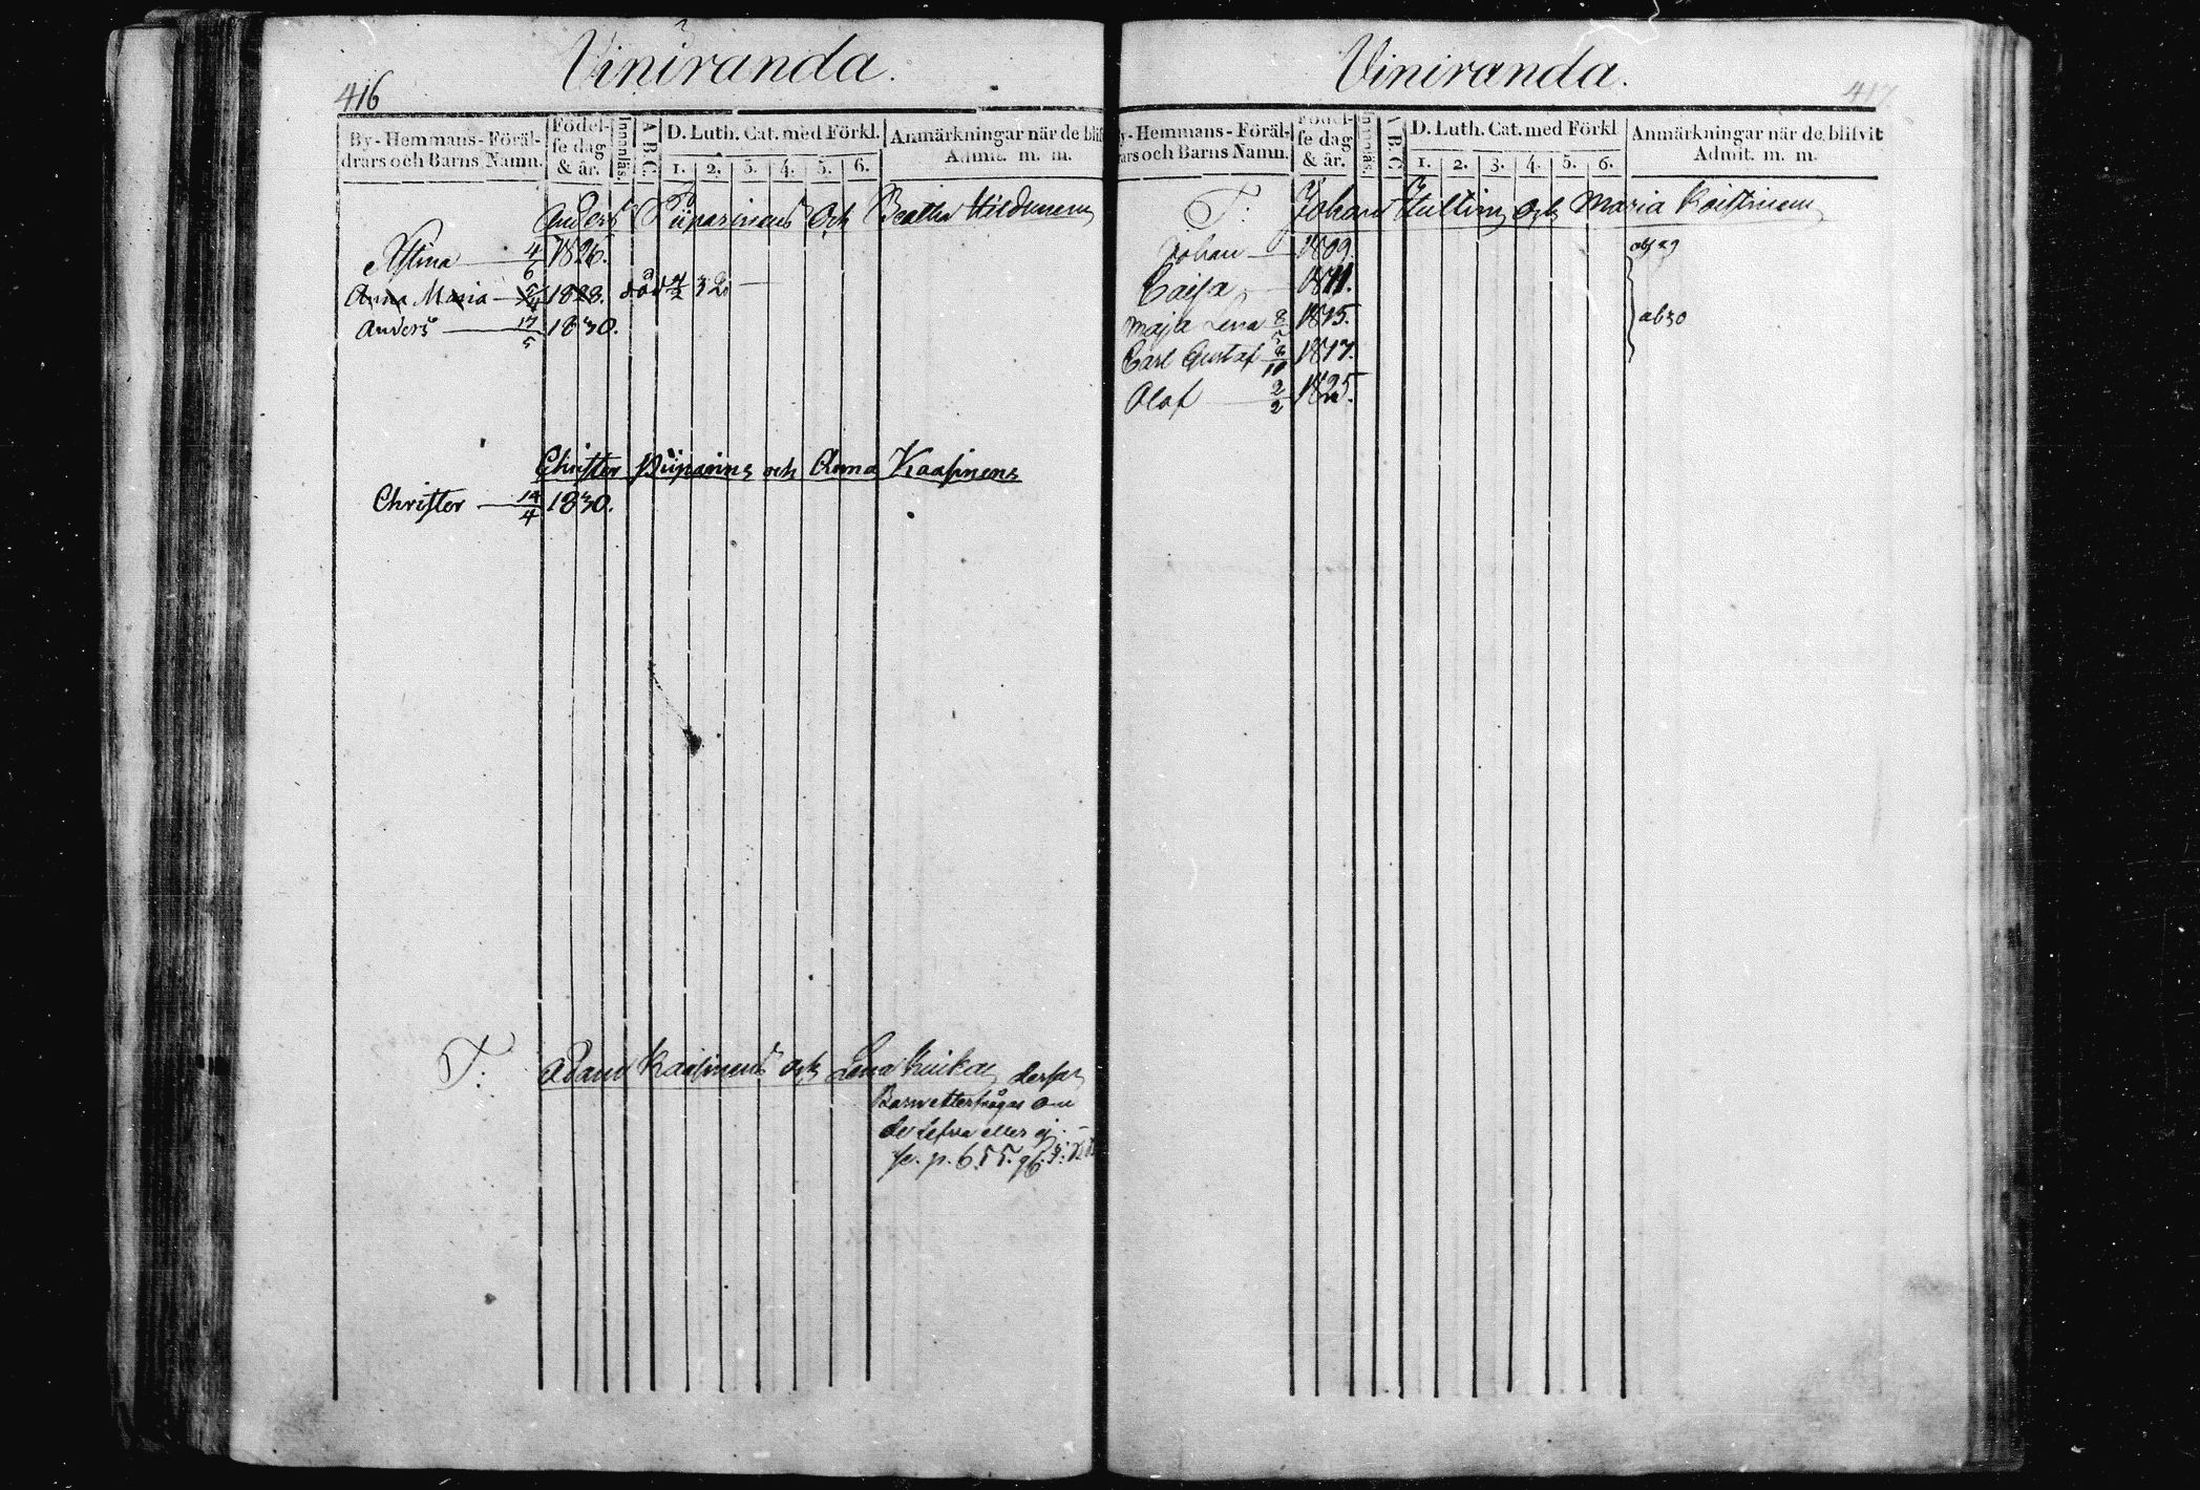 416
Viniranda.
By-Hemmans-Föräl-
drars och Barns Namn.
Födel-
se dag
& år.
Innanläs.
A B C.
D. Luth. Cat. med Förkl.
1. 2. 3. 4. 5. 6.
Anmärkningar när de blif
Admit. m. m.
Anders Piiparinens och Beatha
Stina 4/6 1826.
Anna Maria 1828. död 32.
Anders 17/5 1830.
Christer Piiparins och Anna Kaasinens
Christer 14/4 1830.
T: Adam Kaasinens och Lena
Barn efterfrågas om
de lefva eller ej.
se. p. 655.
417
Viniranda.
y-Hemmans-Föräl-
ars och Barns Namn.
Födel-
se dag
& år.
Innanläs.
A B C
D. Luth. Cat. med Förkl
1. 2. 3. 4. 5. 6.
Anmärkningar när de blifvit
Admit. m. m.
T: Johan Hulting och Maria
Johan 1809.
Caisa 1811.
Maja Lena 1815. ab30
Carl Gustaf 1817.
Olof 2/2 1825.